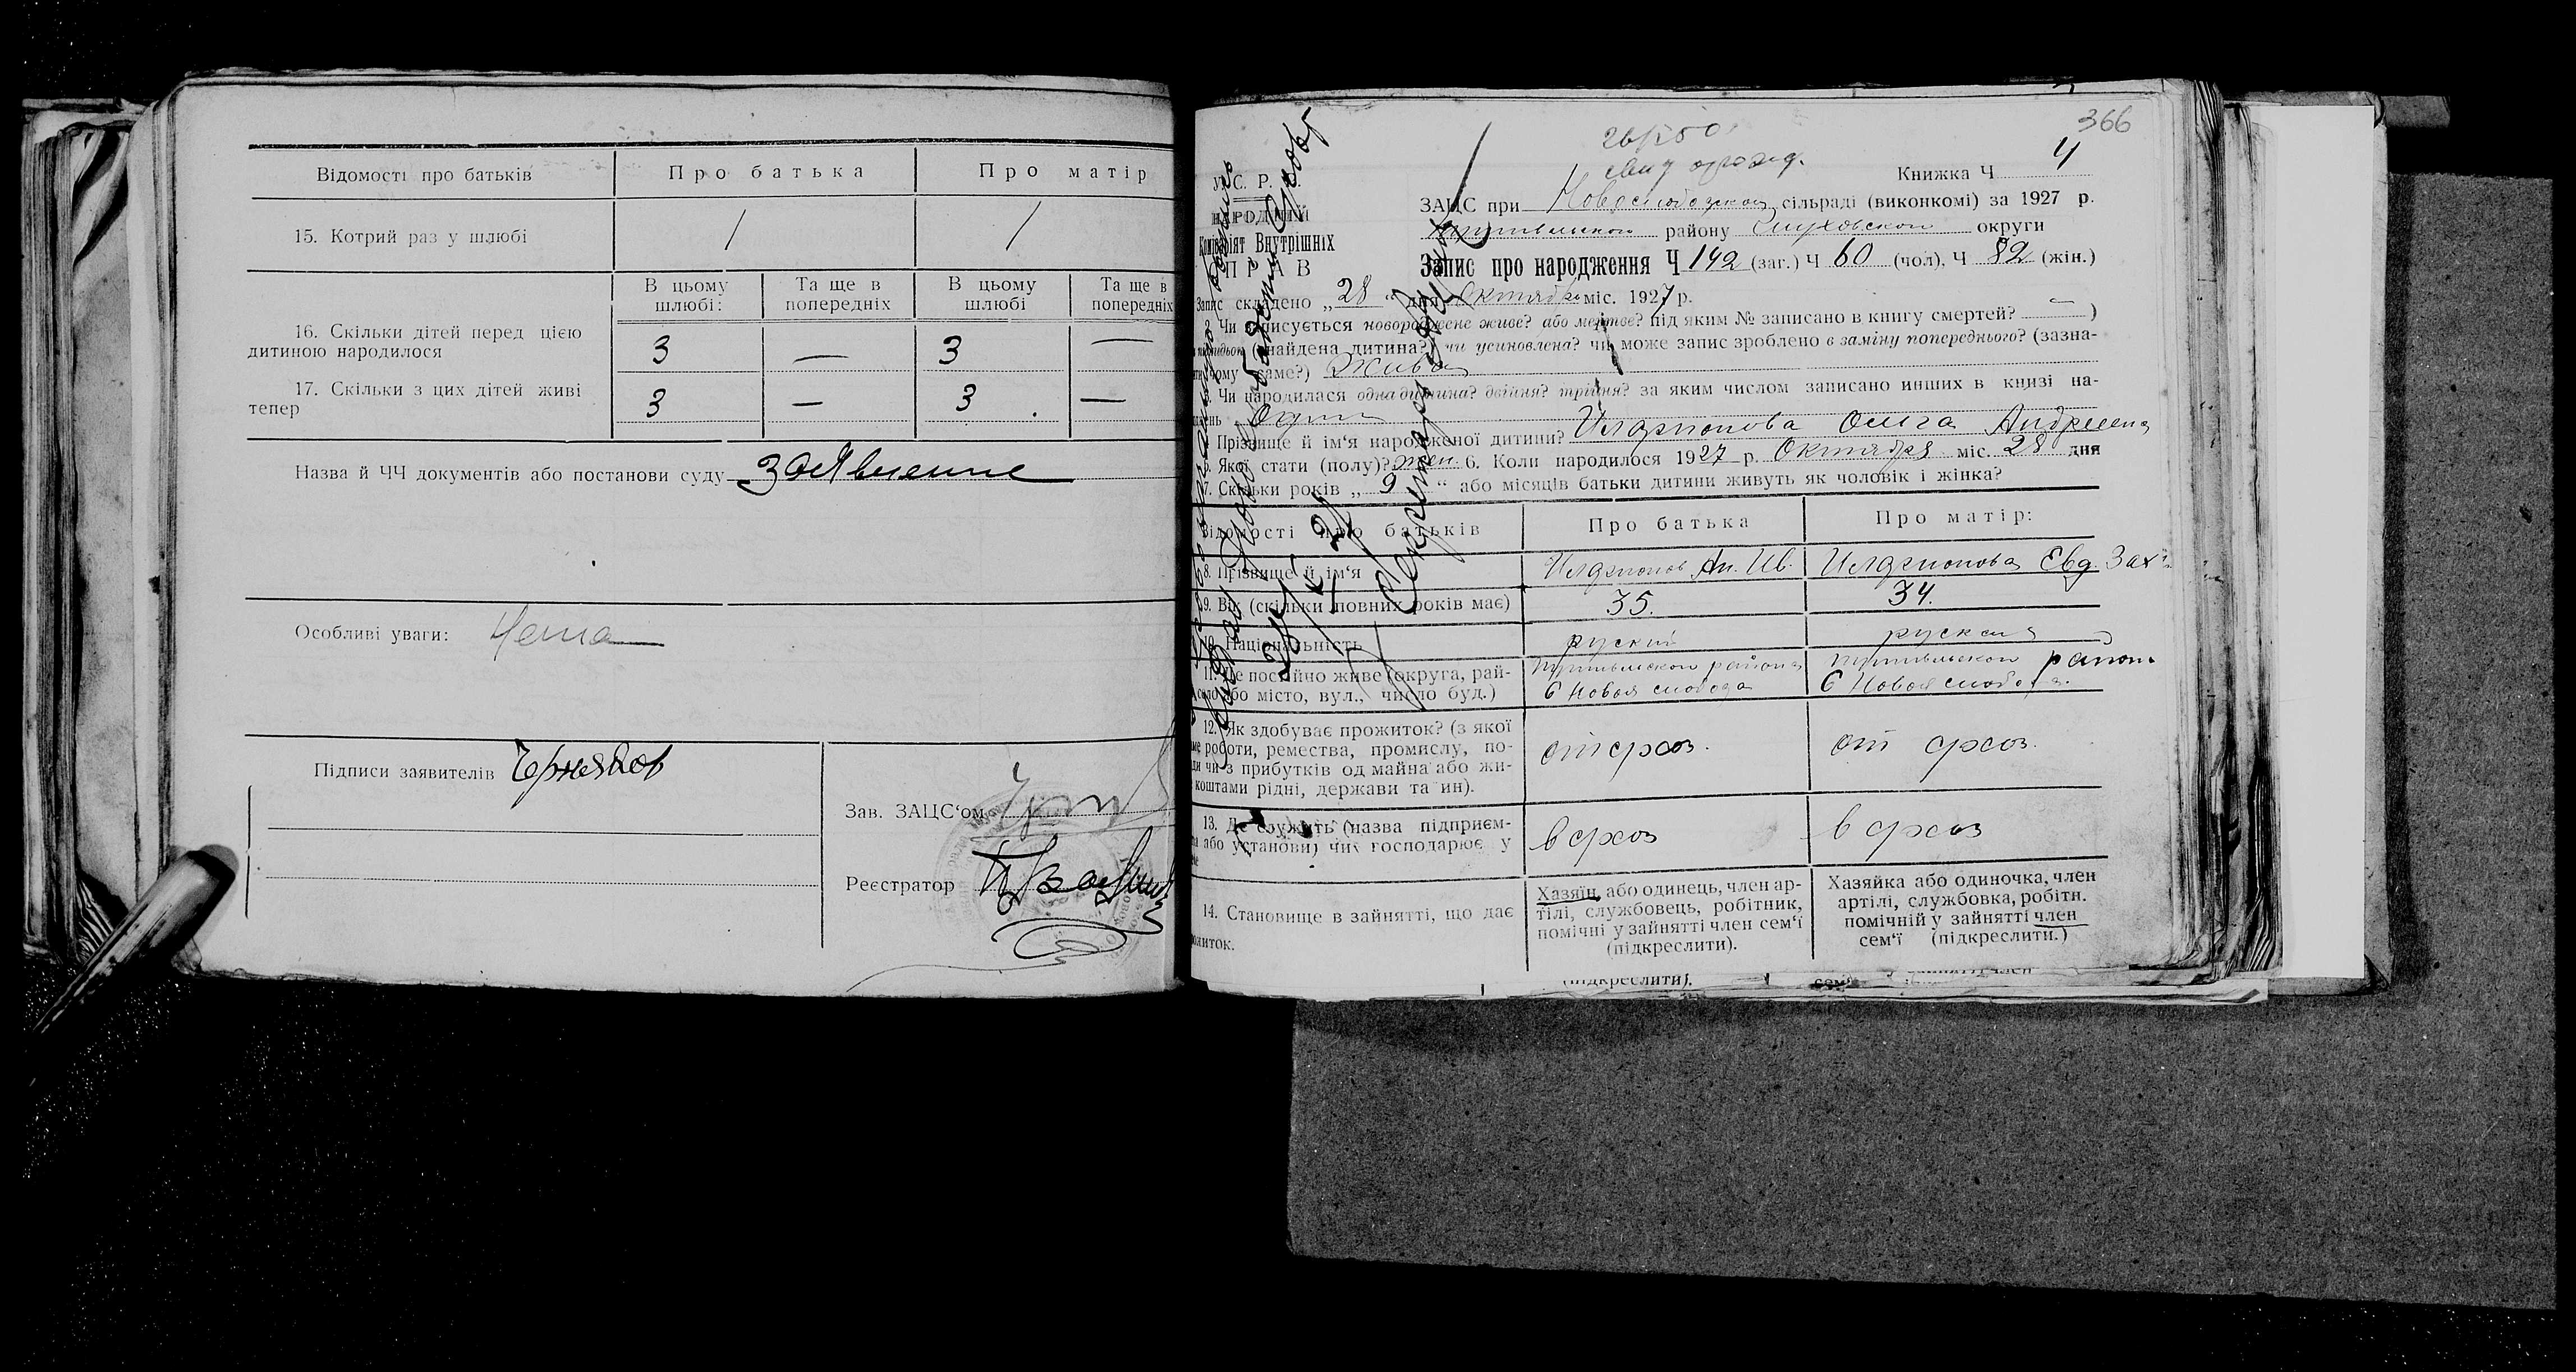 Відомості про батьків Про батька Про матір
15. Котрий раз у шлюбі / /
В цьому шлюбі: Та ще в попередніх В цьому шлюбі Та ще в попередніх
16. Скільки дітей перед цією
дитиною народилося 3 — 3 —
17. Скільки з цих дітей живі
тепер 3 — 3 —
Назва й ЧЧ документів або постанови суду Заявление
Особливі уваги:
Підписи заявителів Черняков
Зав. ЗАЦС'ом
Реєстратор
366
У. С. Р. Р.
НАРОДНІЙ
Комісаріят Внутрішніх
ПРАВ
Книжка Ч 4
ЗАЦС при Новослободской сільраді (виконкомі) за 1927 р.
Путивльского району Глуховской округи
Запис про народження Ч 142 (заг.) Ч 60 (чол), Ч 82 (жін.)
Запис складено „28“ дня Октября міс. 1927 р.
2. Чи записується новороджене живе? або мертве? під яким № записано в книгу смертей? — )
(знайдена дитина?) чи усиновлена? чи може запис зроблено в заміну попереднього? (зазна-
чому саме?) Живая
3. Чи народилася одна дитина? двійня? трійня? за яким числом записано инших в книзі на-
Один
4. Прізвище й ім'я народженої дитини? Иларионова Ольга Андреевна
5. Якої стати (полу)? жен. 6. Коли народилося 1927 р. Октября міс. 28 дня
7. Скільки років „ 9 “ або місяців батьки дитини живуть як чоловік і жінка?
Відомості про батьків Про батька Про матір:
8. Прізвище й ім'я Иларионов Ан. Ив. Иларионова Евд. Зах.
9. Вік (скільки повних років має) 35. 34.
10. Національність руский руская
11. Де постійно живе (округа, рай- Путивльской района Путивльской район
село або місто, вул., число буд.) с Новая слобода с Новая слобода.
12. Як здобуває прожиток? (з якої
роботи, ремества, промислу, по-
чи з прибутків од майна або жи-
коштами рідні, держави та ин). от схоз. от схоз.
13. Де служить (назва підприєм-
або установи) чи господарює у в схоз в схоз
14. Становище в зайнятті, що дає
прожиток.
Хазяїн, або одинець, член ар-
тілі, службовець, робітник,
помічні у зайнятті член сем'ї
(підкреслити).
Хазяйка або одиночка, член
артілі, службовка, робітн.
помічній у зайнятті член
сем'ї (підкреслити.)
(підкреслити).